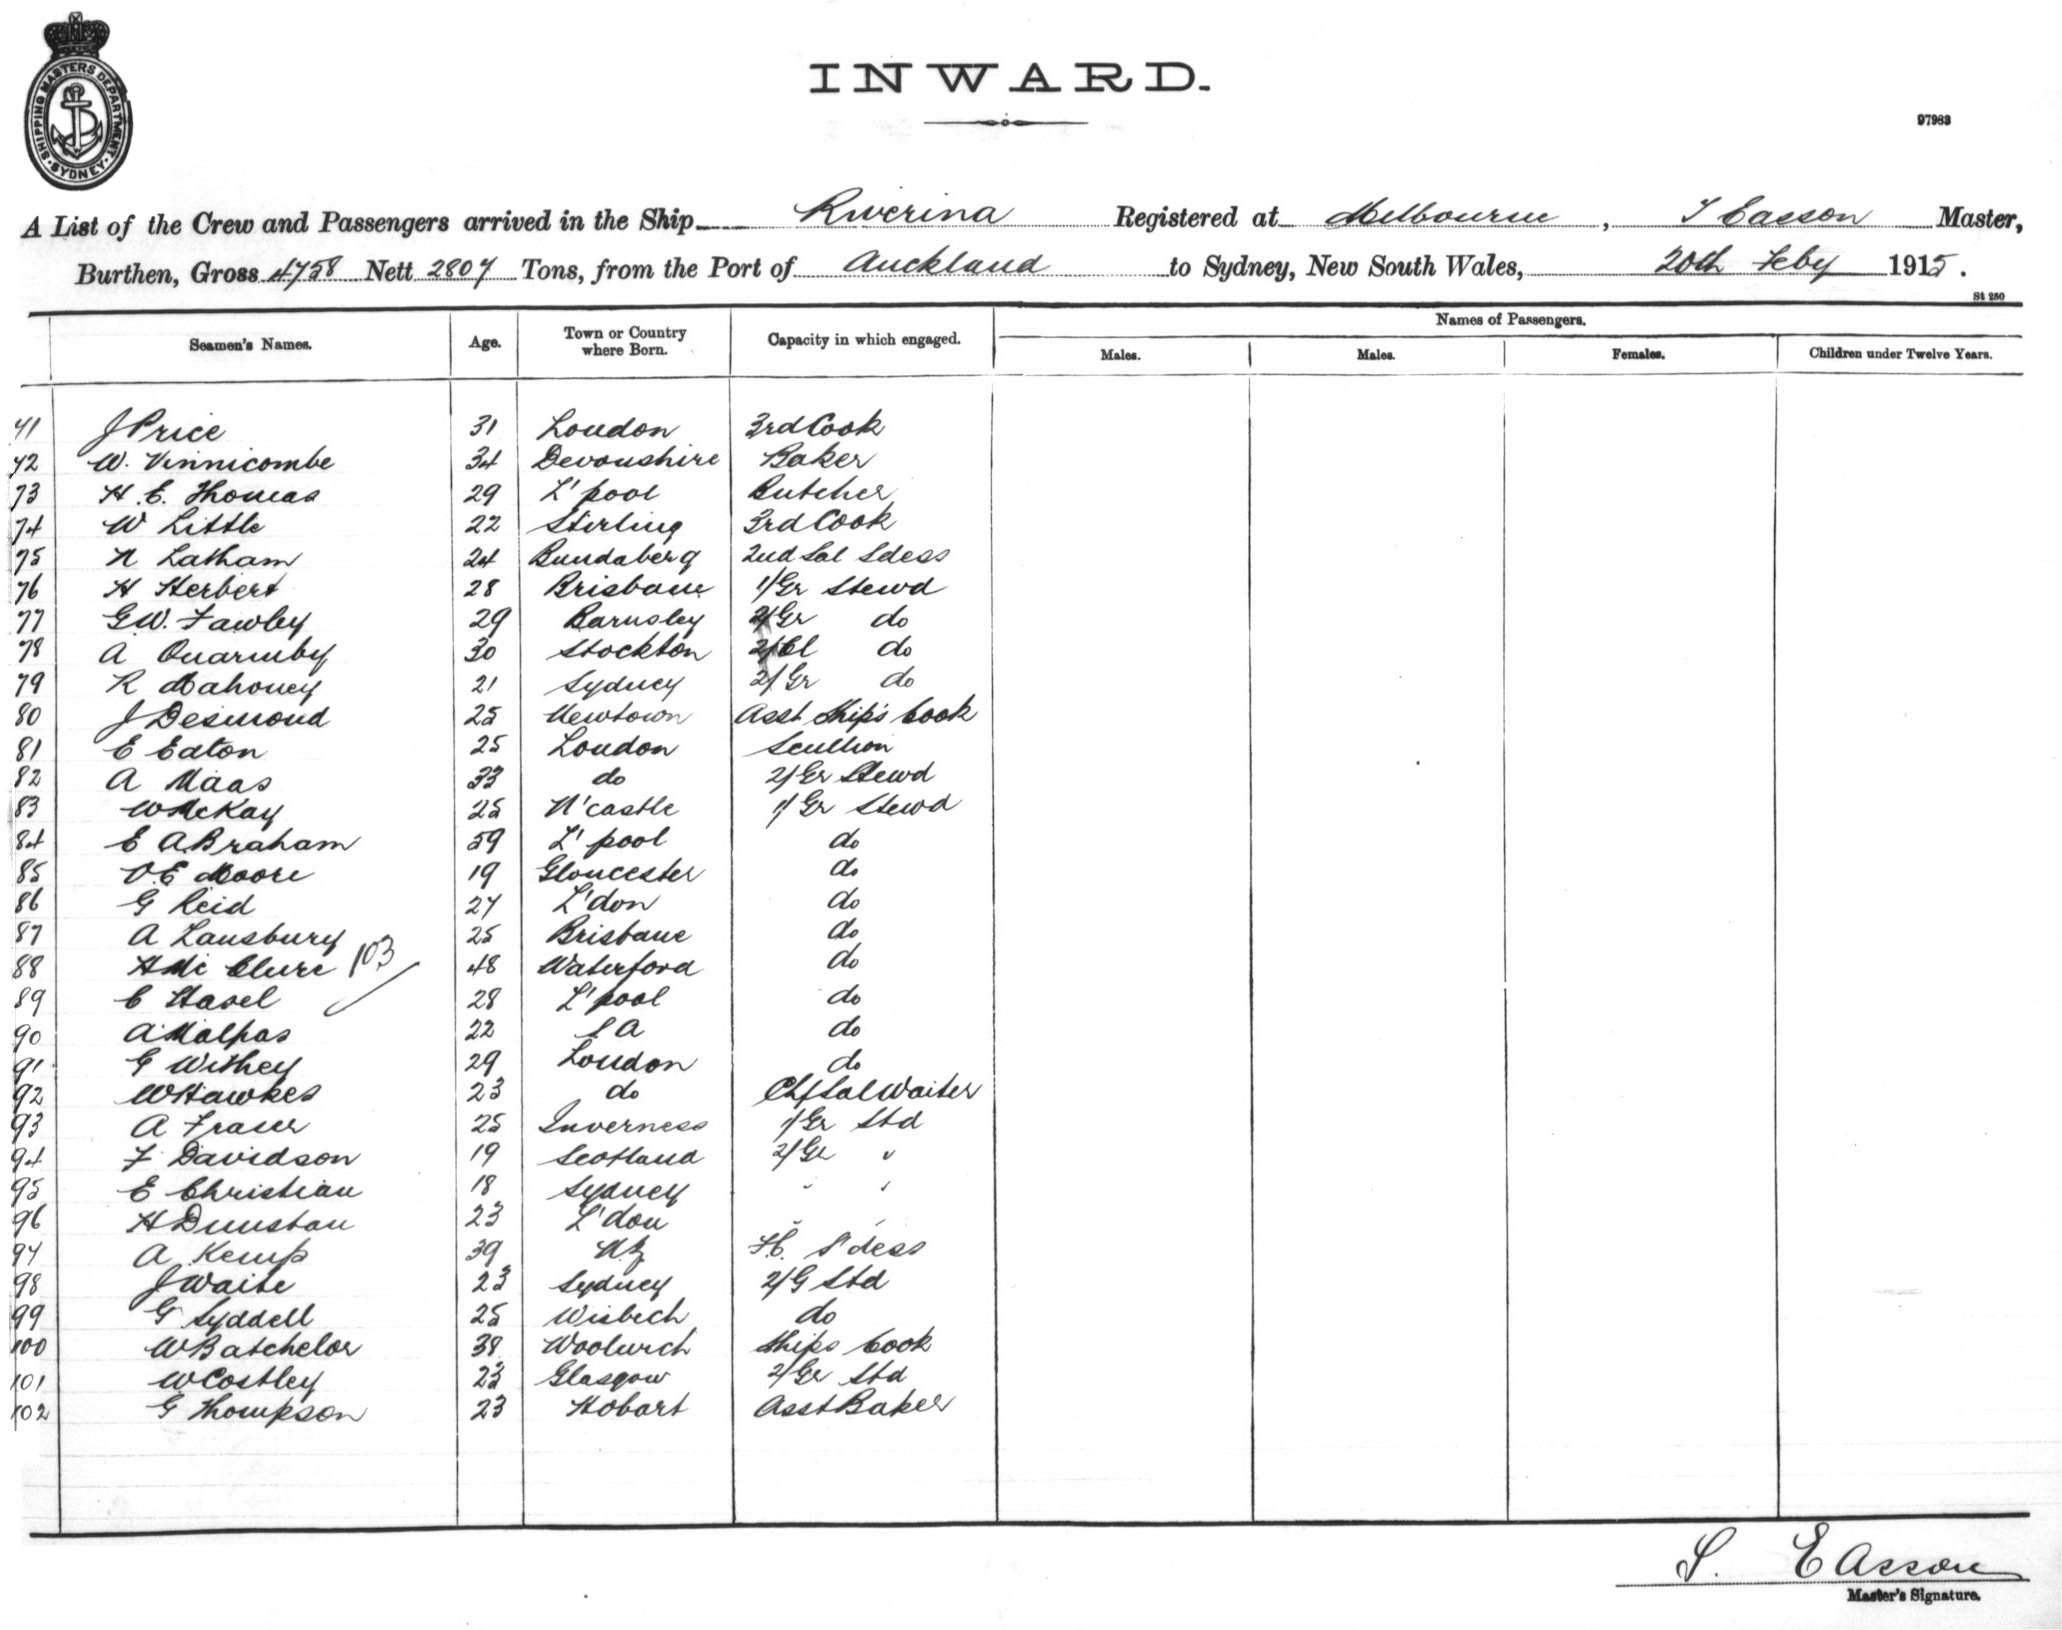 SHIPPING MASTERS DEPARTMENT · SYDNEY ·
INWARD.
97983
A List of the Crew and Passengers arrived in the Ship Riverina Registered at Melbourne, Easson Master,
Burthen, Gross 4758 Nett 2807 Tons, from the Port of Auckland to Sydney, New South Wales, 20th Feby 1915.
St 250
Seamen's Names. Age. Town or Country where Born. Capacity in which engaged. Names of Passengers.
Males. Males. Females. Children under Twelve Years.
71 J Price 31 London 3rd Cook
72 W. Vinnicombe 34 Devonshire Baker
73 H. E. Thomas 29 L'pool Butcher
74 W Little 22 Stirling 3rd Cook
75 N Latham 24 Bundaberg 2nd Sal Sdess
76 H Herbert 28 Brisbane 1/Gr Stewd
77 G.W. Fawley 29 Barnsley 2/Gr do
78 A Quarmby 30 Stockton 2/Cl do
79 R Mahoney 21 Sydney 2/Gr do
80 J Desmond 25 Newtown Asst Ship's Cook
81 E Eaton 25 London Scullion
82 A Maas 33 do 2/Gr Stewd
83 W McKay 25 N'castle 1/Gr Stewd
84 E A.Braham 59 L'pool do
85 E Moore 19 Gloucester do
86 G Reid 27 L'don do
87 A Lansbury 25 Brisbane do
88 H Mc Clure 103 48 Waterford do
89 C Hasel 28 L'pool do
90 A Malpas 22 S A do
91 G Withey 29 London do
92 W Hawkes 23 do Chf Sal Waiter
93 A Fraser 25 Inverness 1/Gr Std
94 F Davidson 19 Scotland 2/Gr "
95 E Christian 18 Sydney " "
96 H Dunstan 23 L'don " "
97 A Kemp 39 NZ F.C. S'dess
98 J Waite 23 Sydney 2/G Std
99 G Syddell 25 Wisbech do
100 W Batchelor 38 Woolwich Ships Cook
101 W Costley 23 Glasgow 2/Gr Std
102 G Thompson 23 Hobart Asst Baker
S. Easson
Master's Signature.